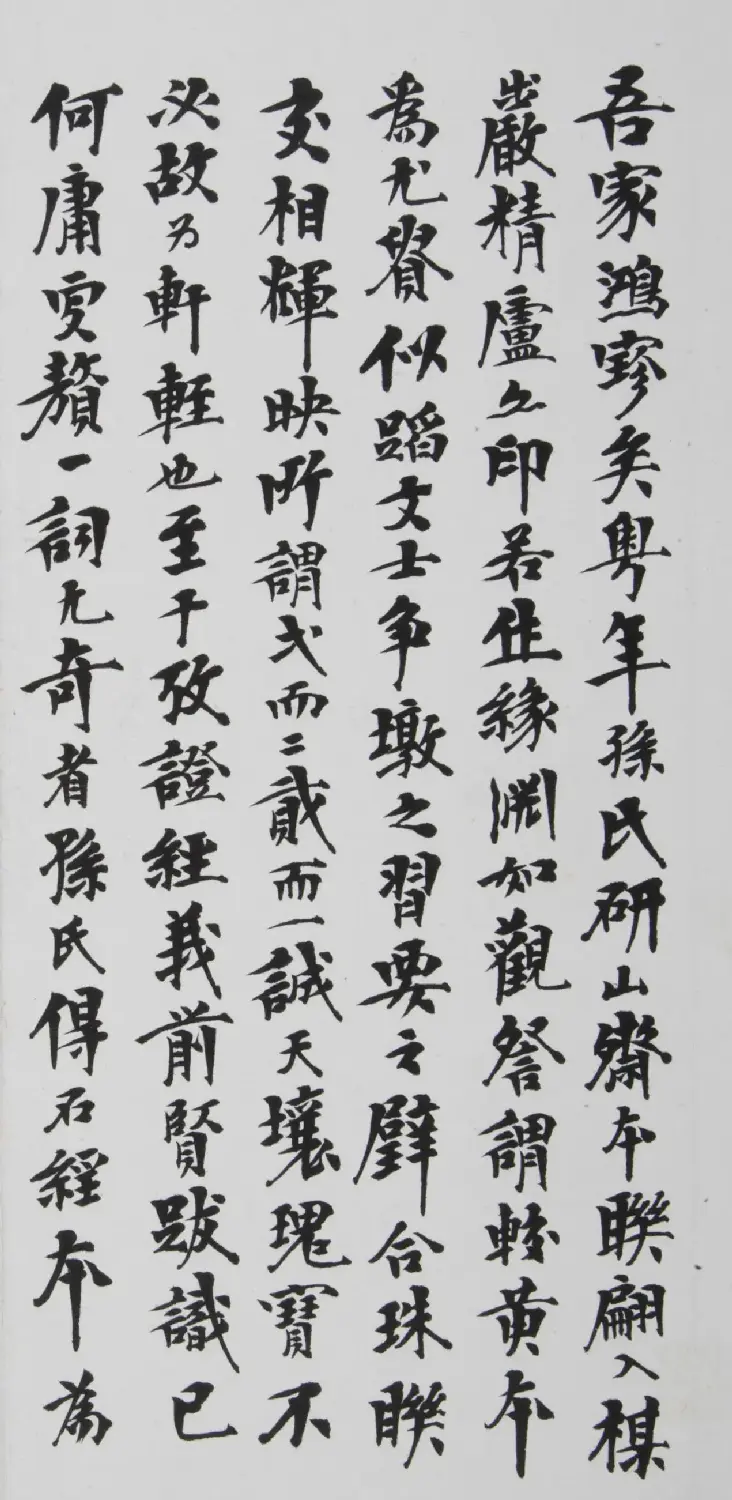 吾家鴻寶矣粵年孫氏研山齋本聯翩入楳
嵓精廬之印若仹緣淵如觀詧謂較黄本
爲尤賢似蹈文士爭墩之習要之璧合珠聯
交相輝映所謂弌而二貳而一誠天壤瑰寶不
必故为軒輊也至于攷證經義前賢跋識已
何庸更贅一詞尤奇者孫氏得石經本爲